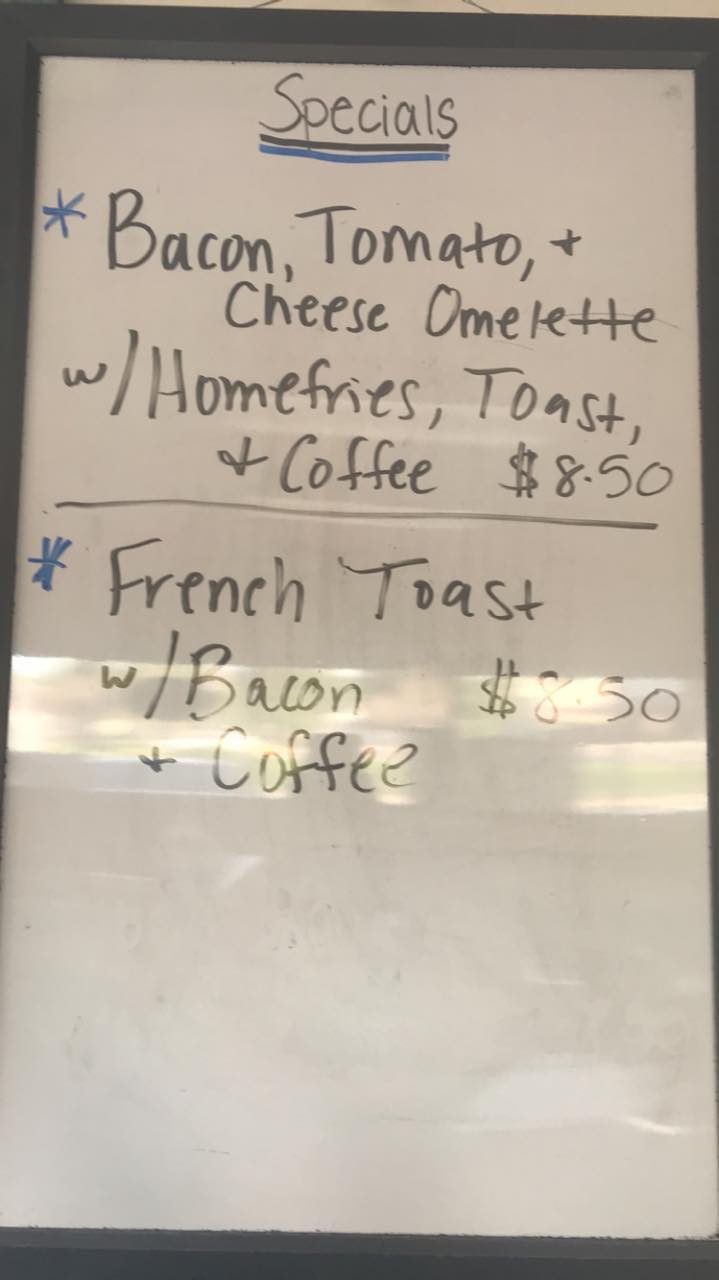 Specials
* Bacon, Tomato, +
Cheese Omelette
w/Homefries, Toast,
+ Coffee $8.50
* French Toast
w/Bacon $8.50
+ Coffee